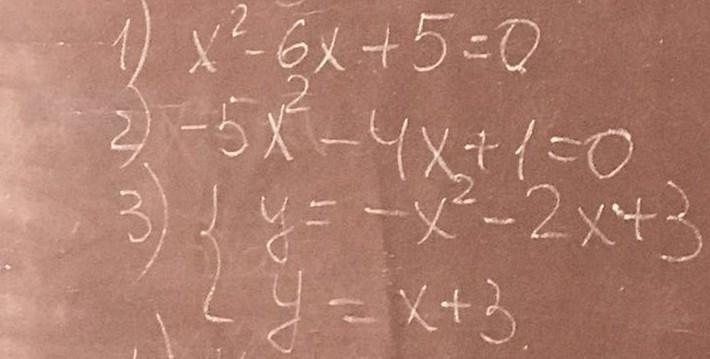 1) x² - 6x + 5 = 0
2) -5x² - 4x + 1 = 0
3) { y = -x² - 2x + 3
y = x + 3